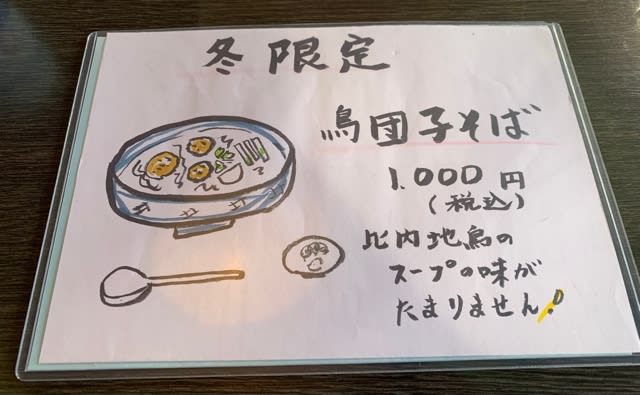 冬限定
鳥団子そば
1.000円
(税込)
比内地鳥の
スープの味が
たまりません!